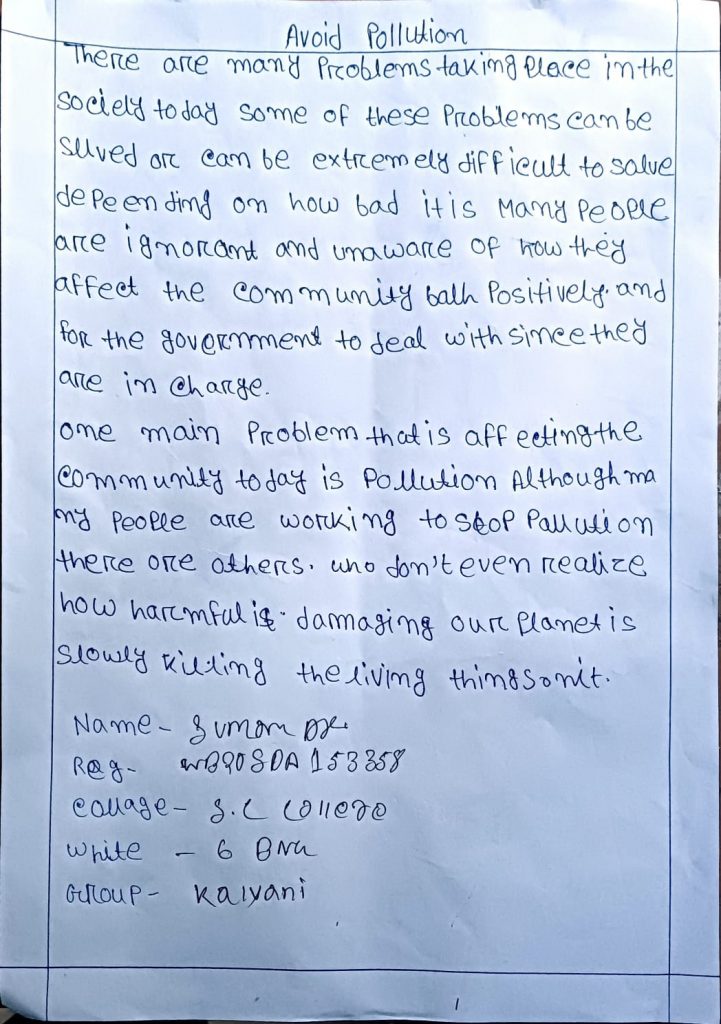 Avoid Pollution
There are many Problems taking Place in the
society today some of these Problems can be
sulved or can be extremely difficult to salve
depeending on how bad it is Many People
are ignorant and unaware of how they
affect the community bath Positively. and
for the government to deal with since they
are in charge.
one main Problem that is affecting the
community today is Pollution Although ma
ny People are working to stop Pallution
there are others. who don't even realize
how harmful is. damaging our Planet is
slowly killing the living things on it.
Name - Suman
Reg - WB20SDA153358
Collage - S.C College
White - 6 BNG
Group - Kalyani
1